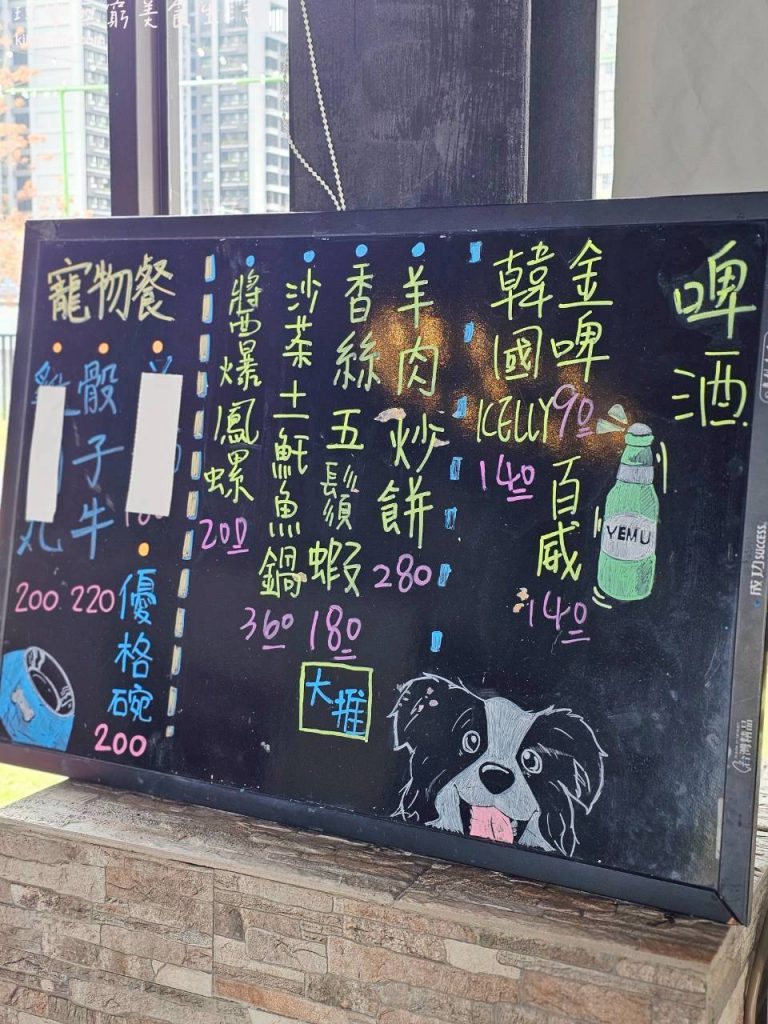 啤酒
金啤
90
百威
140
韓國
KELLY
140
YEMU
羊肉炒餅
280
香絲五鬚蝦
180
大推
沙茶土魠魚鍋
360
醬爆鳳螺
200
寵物餐
骰子牛
220
丸
200
優格碗
200
成功 SUCCESS.
台灣精品